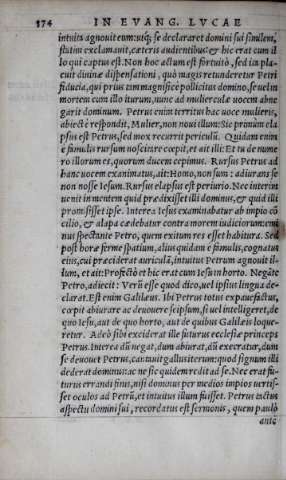 174 IN EVANG. LVCAE
intuita agnouit eum: utq; se declararet domini sui similem,
statim exclamauit, cæteris audientibus: & hic erat cum il
lo qui captus est. Non hoc actum est fortuitò, sed ita pla-
cuit diuinæ dispensationi, quò magis retunderetur Petri
fiducia, qui prius tàm magnificè pollicitus domino, se uel in
mortem cum illo iturum, nunc ad mulierculæ uocem abne
garit dominum. Petrus enim territus hac uoce mulieris,
abiectè respondit, Mulier, non noui illum: Sic primùm ela
psus est Petrus, sed mox recurrit periculū. Quidam enim
è famulis rursum noscitare cœpit, et ait illi: Et tu de nume
ro illorum es, quorum ducem cepimus. Rursus Petrus ad
hanc uocem exanimatus, ait: Homo, non sum: adiurans se
non nosse Iesum. Rursus elapsus est periurio. Nec interim
uenit in mentem quid prædixisset illi dominus, & quid illi
promisisset ipse. Interea Iesus examinabatur ab impio cō
cilio, & alapa cædebatur contra morem iudiciorum: emi
nus spectante Petro, quem exitum res esset habitura. Sed
post horæ fermè spatium, alius quidam è famulis, cognatus
eius, cui præciderat auriculā, intuitus Petrum agnouit il-
lum, et ait: Profectò et hic erat cum Iesu in horto. Negāte
Petro, adiecit: Verū esse quod dico, uel ipsius lingua de-
clarat. Est enim Galilæus. Ibi Petrus totus expauefactus,
cœpit abiurare ac deuouere seipsum, si uel intelligeret, de
quo Iesu, aut de quo horto, aut de quibus Galilæis loque-
retur. Adeò sibi exciderat ille futurus ecclesiæ princeps
Petrus. Interea dū negat, dum abiurat, dū execratur, dum
se deuouet Petrus, cantauit gallus iterum: quod signum illi
dederat dominus: ac ne sic quidem redit ad se. Nec erat fu-
turus errandi finis, nisi dominus per medios impios uertis-
set oculos ad Petrū, et intuitus illum fuisset. Petrus tactus
aspectu domini sui, recordatus est sermonis, quem paulò
antè